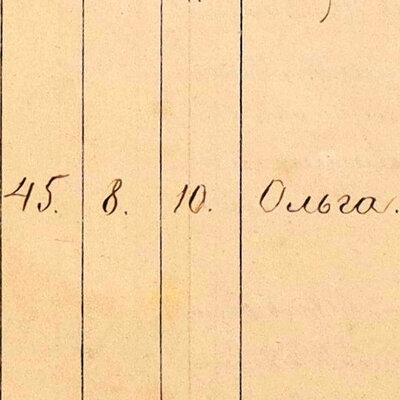 45. 8. 10. Ольга.